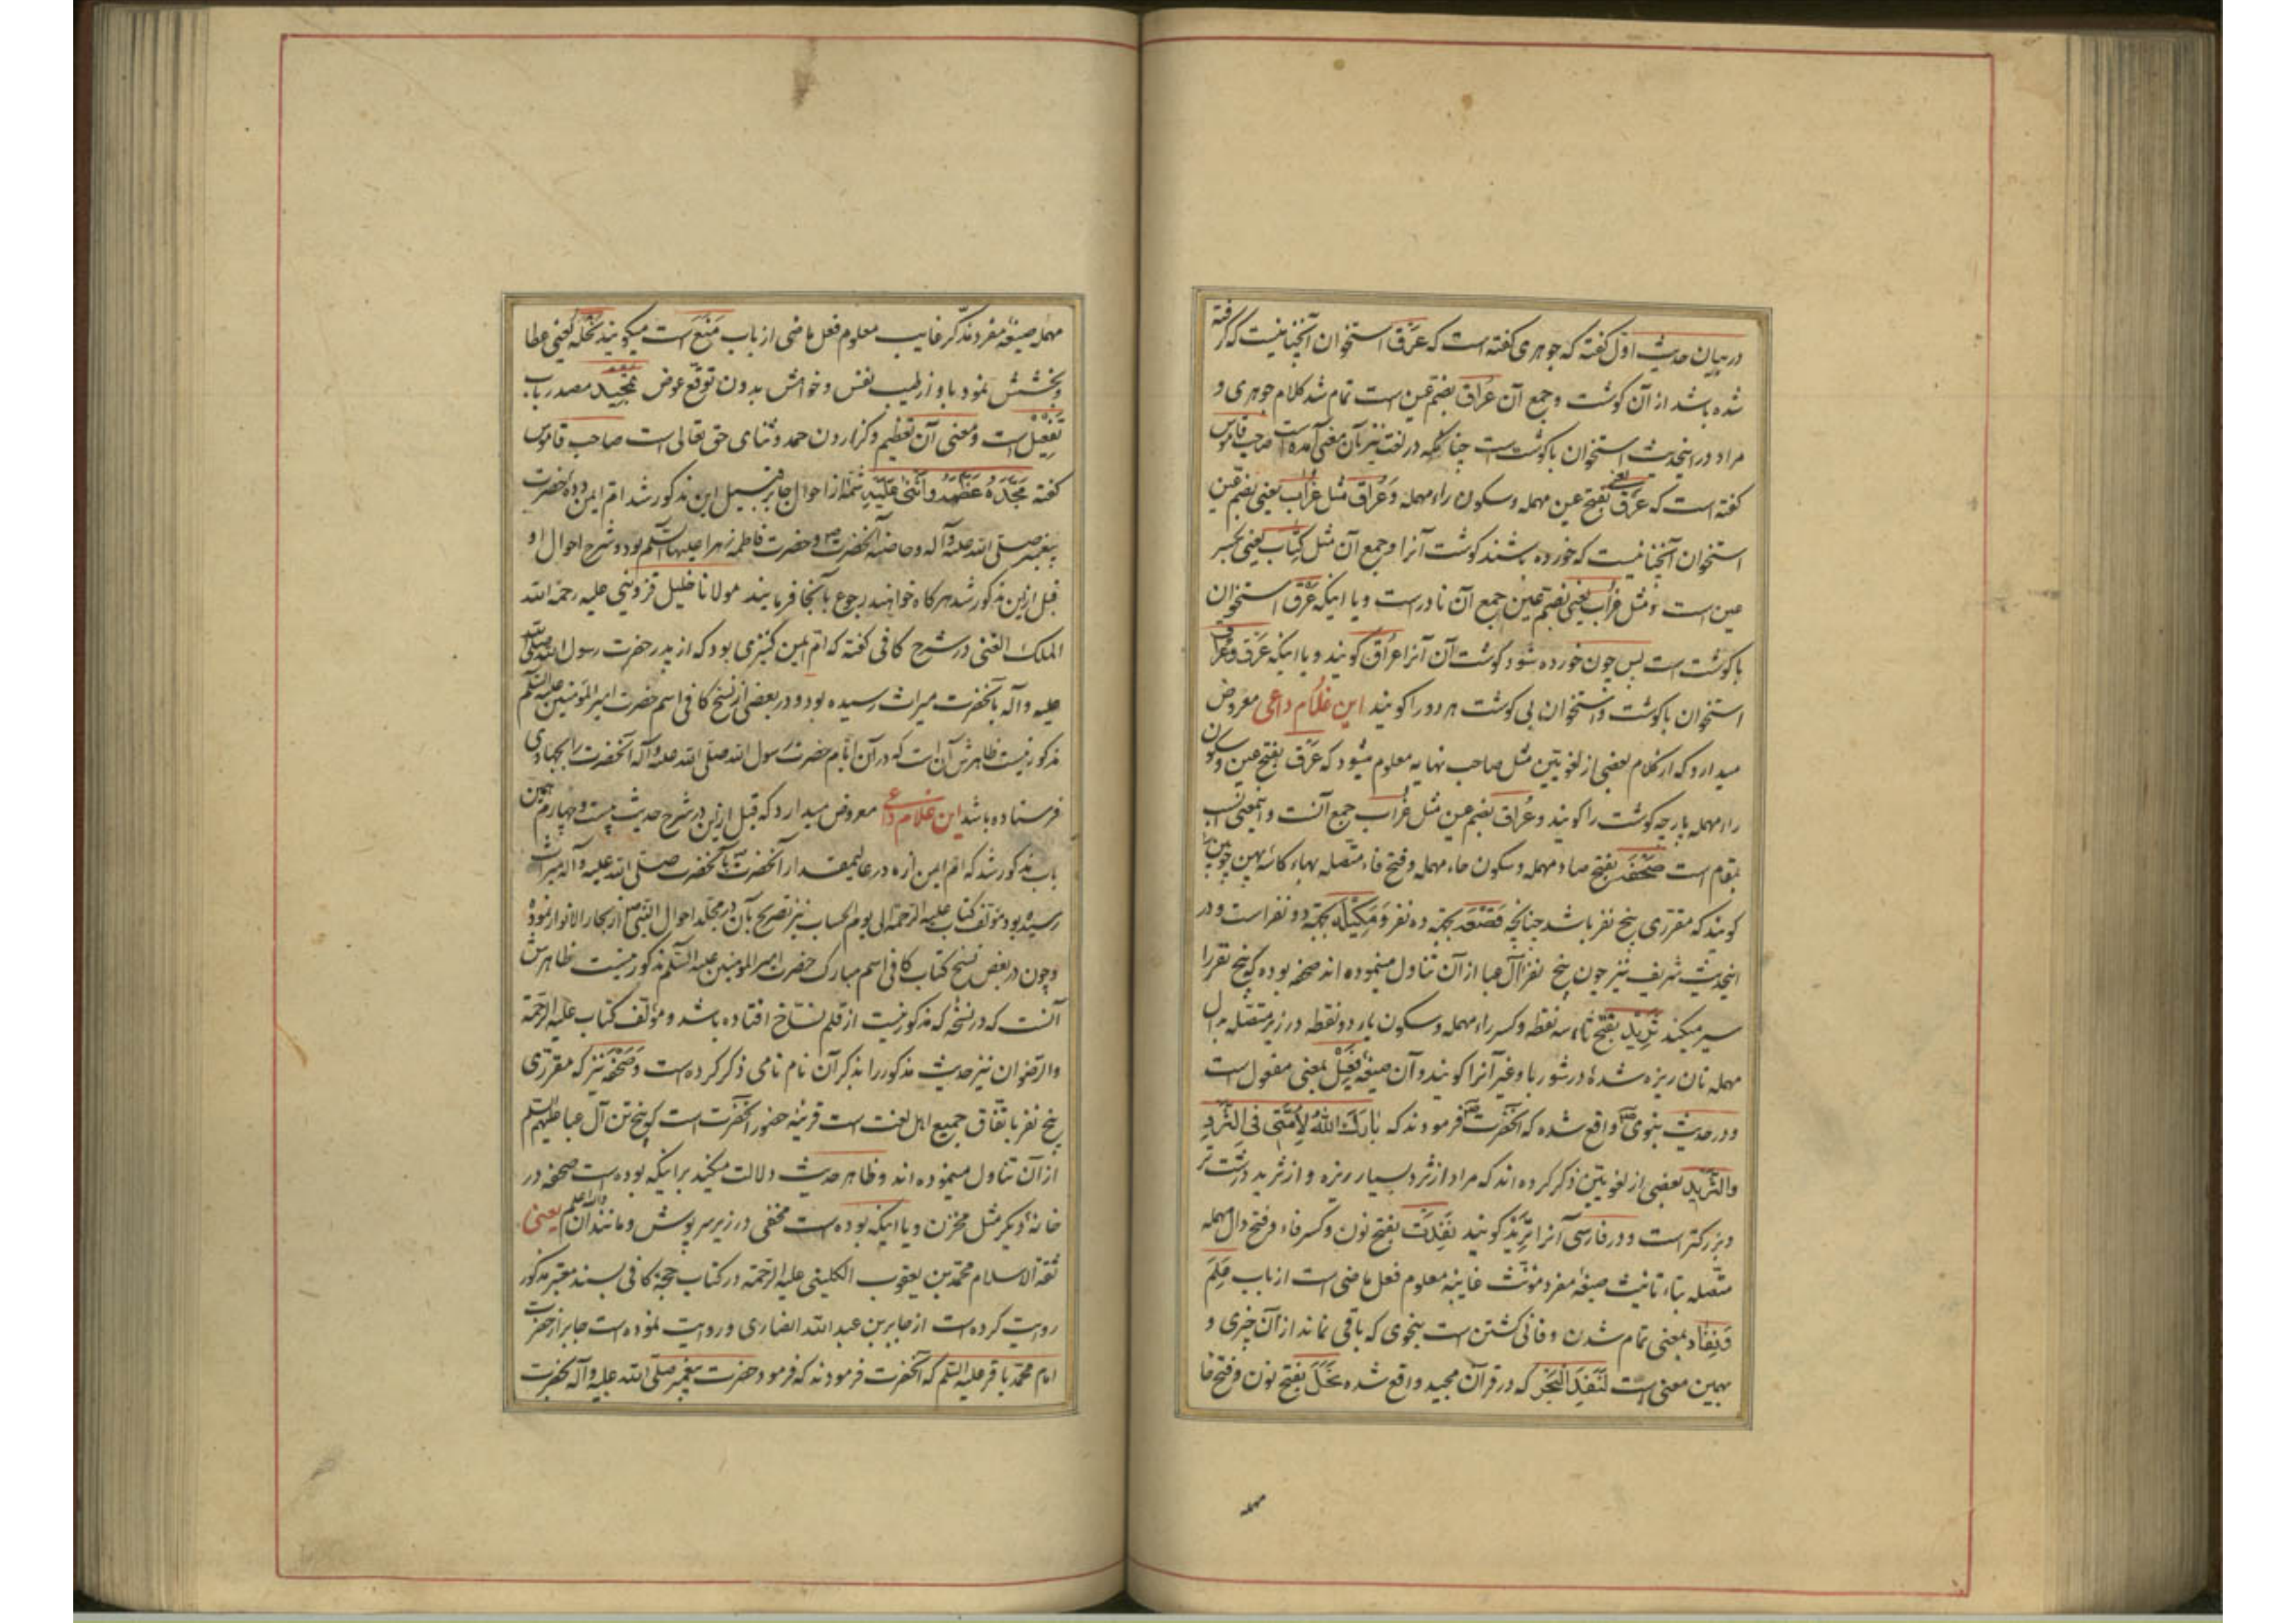 در بیان حدیث اول گفته که جوهری گفته است که عَرق استخوان آنچنانیست که گرفته
شده باشد از آن گوشت و جمع آن عُراق بضم عین است تمام شد کلام جوهری و
مراد در اینحدیث استخوان با گوشت است چنانکه در لغت نیز بآن معنی آمده است صاحب قاموس
گفته است که عَرق یعنی بفتح عین مهمله و سکون راء مهمله و عُراق مثل غُراب یعنی بضم عین
استخوان آنچنانیست که خورده باشند گوشت آنرا و جمع آن مثل کِتاب یعنی بکسر
عین است و مثل غراب یعنی بضم عین جمع آن نادر است و یا اینکه عَرق استخوان
با گوشت است پس چون خورده شود گوشت آن آنرا عُراق گویند و یا اینکه عَرق و عُراق
استخوان با گوشت و استخوان بی گوشت هر دو را گویند این غلام داعی معروض
میدارد که از کلام بعضی از لغویین مثل صاحب نهایه معلوم میشود که عَرق بفتح عین و سکون
راء مهمله پارچه گوشت را گویند و عُراق بضم عین مثل غُراب جمع آنست و اینمعنی انسب
بمقام است صَحْفَه بفتح صاد مهمله و سکون حاء مهمله و فتح فاء متصله بهاء کاسه پهن
گویند که مقرری پنج نفر باشد چنانچه قَصْعَه بجهة ده نفر و مَکیله بجهة دو نفر است و در
اینحدیث شریف نیز چون پنج نفر آل عبا از آن تناول مینموده اند صحفه بوده که پنج نفر را
سیر میکند ثَرید بفتح ثاء سه نقطه و کسر راء مهمله و سکون یاء دو نقطه در زیر متصله بدال
مهمله نان ریزه شدهٔ در شوربا و غیر آنرا گویند و آن صیغهٔ فعیل بمعنی مفعول است
و در حدیث نبوی ص واقع شده که آنحضرت ص فرمودند که بارَکَ اللهُ لِاُمَّتی فی الثُّردِ
والثَّرید بعضی از لغویین ذکر کرده اند که مراد از ثرد بسیار ریزه و از ثرید درشت تر
و بزرکتر است و در فارسی آنرا تریذ گویند نَفِدَت بفتح نون و کسر فاء و فتح دال مهمله
متصله بتاء تانیث صیغهٔ مفرد مؤنث غایبه معلوم فعل ماضی است از باب عَلِمَ
و نفاد بمعنی تمام شدن و فانی گشتن است بنحوی که باقی نماند از آن چیزی و
بهمین معنی است لَنَفِدَ البَحْرُ که در قرآن مجید واقع شده نَحَلَ بفتح نون و فتح حا
مهمله
مهمله صیغهٔ مفرد مذکر غایب معلوم فعل ماضی از باب مَنَعَ است میگویند نَحَلَهُ یعنی عطا
و بخشش نمود باو از طیب نفس و خواهش بدون توقع عوض تمجید مصدر باب
تفعیل است و معنی آن تعظیم و گزاردن حمد و ثنای حق تعالی است صاحب قاموس
گفته مَجَّدَهُ عَظَّمَهُ وَ اَثْنی عَلَیْهِ شمّهٔ از احوال جابر قبل ازین مذکور شد ام ایمن دده حضرت
پیغمبر صلی الله علیه و آله و حاضنه آنحضرت ص و حضرت فاطمه زهرا علیها السلم بود و شرح احوال او
قبل ازین مذکور شد هرگاه خواهند رجوع بآنجا فرمایند مولانا خلیل قزوینی علیه رحمة الله
الملک الغنی در شرح کافی گفته که ام ایمن کنیزی بود که از پدر حضرت رسول الله صلی الله
علیه و آله بآنحضرت میراث رسیده بود و در بعضی از نسخ کافی اسم حضرت امیر المؤمنین علیه السلم
مذکور نیست ظاهرش آن است که در آن ایام حضرت رسول الله صلی الله علیه و آله آنحضرت را بجهادی
فرستاده باشد این غلام داعی معروض میدارد که قبل ازین در شرح حدیث بیست و چهارم همین
باب مذکور شد که ام ایمن از پدر عالیمقدار آنحضرت ص بآنحضرت صلی الله علیه و آله میراث
رسیده بود مؤلف کتاب علیه الرحمة الی یوم الحساب نیز تصریح بآن در مجلد احوال النبی ص از بحار الانوار نموده
و چون در بعض نسخ کتاب کافی اسم مبارک حضرت امیر المؤمنین علیه السلم مذکور نیست ظاهرش
آنست که در نسخهٔ که مذکور نیست از قلم نساخ افتاده باشد و مؤلف کتاب علیه الرحمة
والرضوان نیز حدیث مذکور را بذکر آن نام نامی ذکر کرده است و صَحْفَه نیز که مقرری
پنج نفر باتفاق جمیع اهل لغت است قرینهٔ حضور آنحضرت است که پنج تن آل عبا علیهم السلم
از آن تناول مینموده اند و ظاهر حدیث دلالت میکند بر اینکه بوده است صحفه در
خانهٔ دیگر مثل مخزن و یا اینکه بوده است مخفی در زیر سرپوش و مانند آن والله اعلم یعنی
ثقة الاسلام محمد بن یعقوب الکلینی علیه الرحمة در کتاب حجة کافی بسند معتبر مذکور
روایت کرده است از جابر بن عبدالله انصاری و روایت نموده است جابر از حضرت
امام محمد باقر علیه السلم که آنحضرت فرمودند که فرمود حضرت پیغمبر صلی الله علیه و آله بحضرت